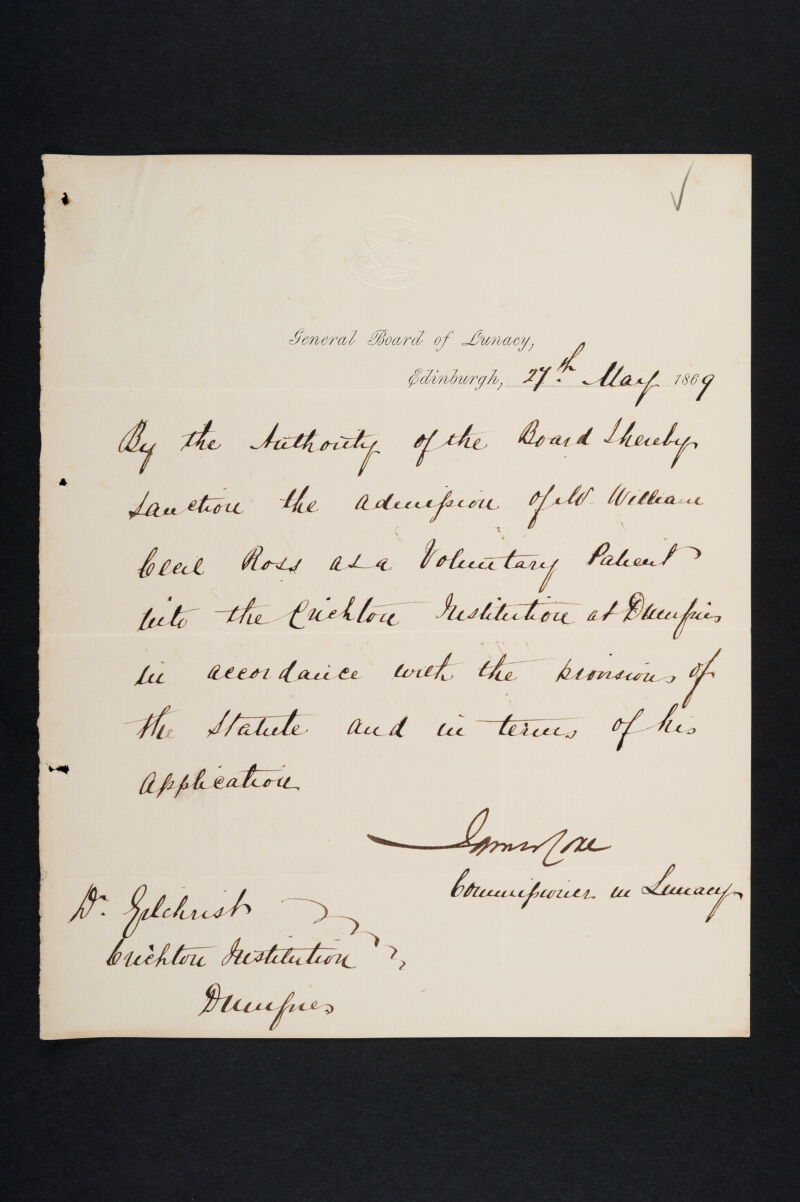 General Board of Lunacy,
Edinburgh, 27th. May 1869
By the Authority of the Board I hereby
sanction the admission of Mr William
Cecil Ross as a Voluntary Patient
into the Crichton Institution at Dumfries
in accordance with the provisions of
the Statute and in terms of his
Application
James Coxe
Commissioner in Lunacy
Dr. Gilchrist
Crichton Institution
Dumfries